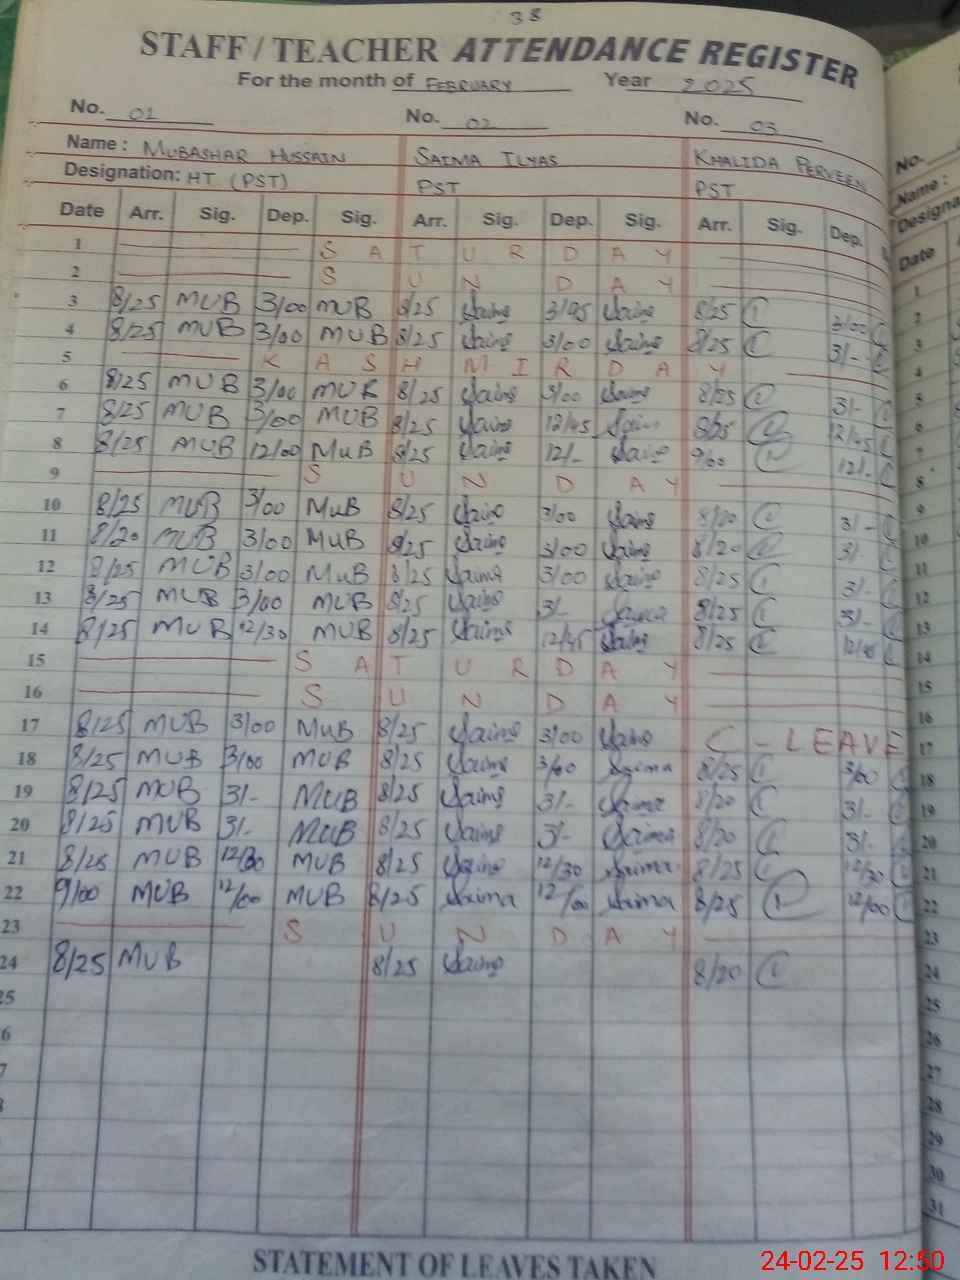 38
STAFF / TEACHER ATTENDANCE REGISTER
For the month of FEBRUARY Year 2025
No. 01 No. 02 No. 03 No.
Name: MUBASHAR HUSSAIN SAIMA ILYAS KHALIDA PERVEEN Name:
Designation: HT (PST) PST PST Designa
Date Arr. Sig. Dep. Sig. Arr. Sig. Dep. Sig. Arr. Sig. Dep. Date
1 SATURDAY 1
2 SUNDAY 2
3 8/25 MUB 3/00 MUB 8/25 Saima Saima 8/25 3/00 3
4 8/25 MUB 3/00 MUB 8/25 Saima 3/00 Saima 8/25 3/- 4
5 KASHMIR DAY 5
6 8/25 MUB 3/00 MUB 8/25 Saima 3/00 Saima 8/25 3/- 6
7 8/25 MUB 3/00 MUB 8/25 Saima 12/45 Saima 8/25 12/45 7
8 8/25 MUB 12/00 MUB 8/25 Saima 12/- Saima 9/00 12/- 8
9 SUNDAY 9
10 8/25 MUB 3/00 MUB 8/25 Saima 3/00 Saima 8/20 3/- 10
11 8/20 MUB 3/00 MUB 8/25 Saima 3/00 Saima 8/20 3/- 11
12 8/25 MUB 3/00 MUB 8/25 Saima 3/00 Saima 8/25 3/- 12
13 8/25 MUB 3/00 MUB 8/25 Saima 3/- Saima 8/25 3/- 13
14 8/25 MUB 12/30 MUB 8/25 Saima 12/45 Saima 8/25 12/45 14
15 SATURDAY 15
16 SUNDAY 16
17 8/25 MUB 3/00 MUB 8/25 Saima 3/00 Saima C-LEAVE 17
18 8/25 MUB 3/00 MUB 8/25 Saima 3/00 Saima 8/25 3/00 18
19 8/25 MUB 3/- MUB 8/25 Saima 3/- Saima 8/20 3/- 19
20 8/25 MUB 3/- MUB 8/25 Saima 3/- Saima 8/20 3/- 20
21 8/25 MUB 12/30 MUB 8/25 Saima 12/30 Saima 8/25 12/30 21
22 9/00 MUB 12/00 MUB 8/25 Saima 12/00 Saima 8/25 12/00 22
23 SUNDAY 23
24 8/25 MUB 8/25 Saima 8/20 24
25 25
6 26
7 27
28
29
30
31
STATEMENT OF LEAVES TAKEN
24-02-25 12:50